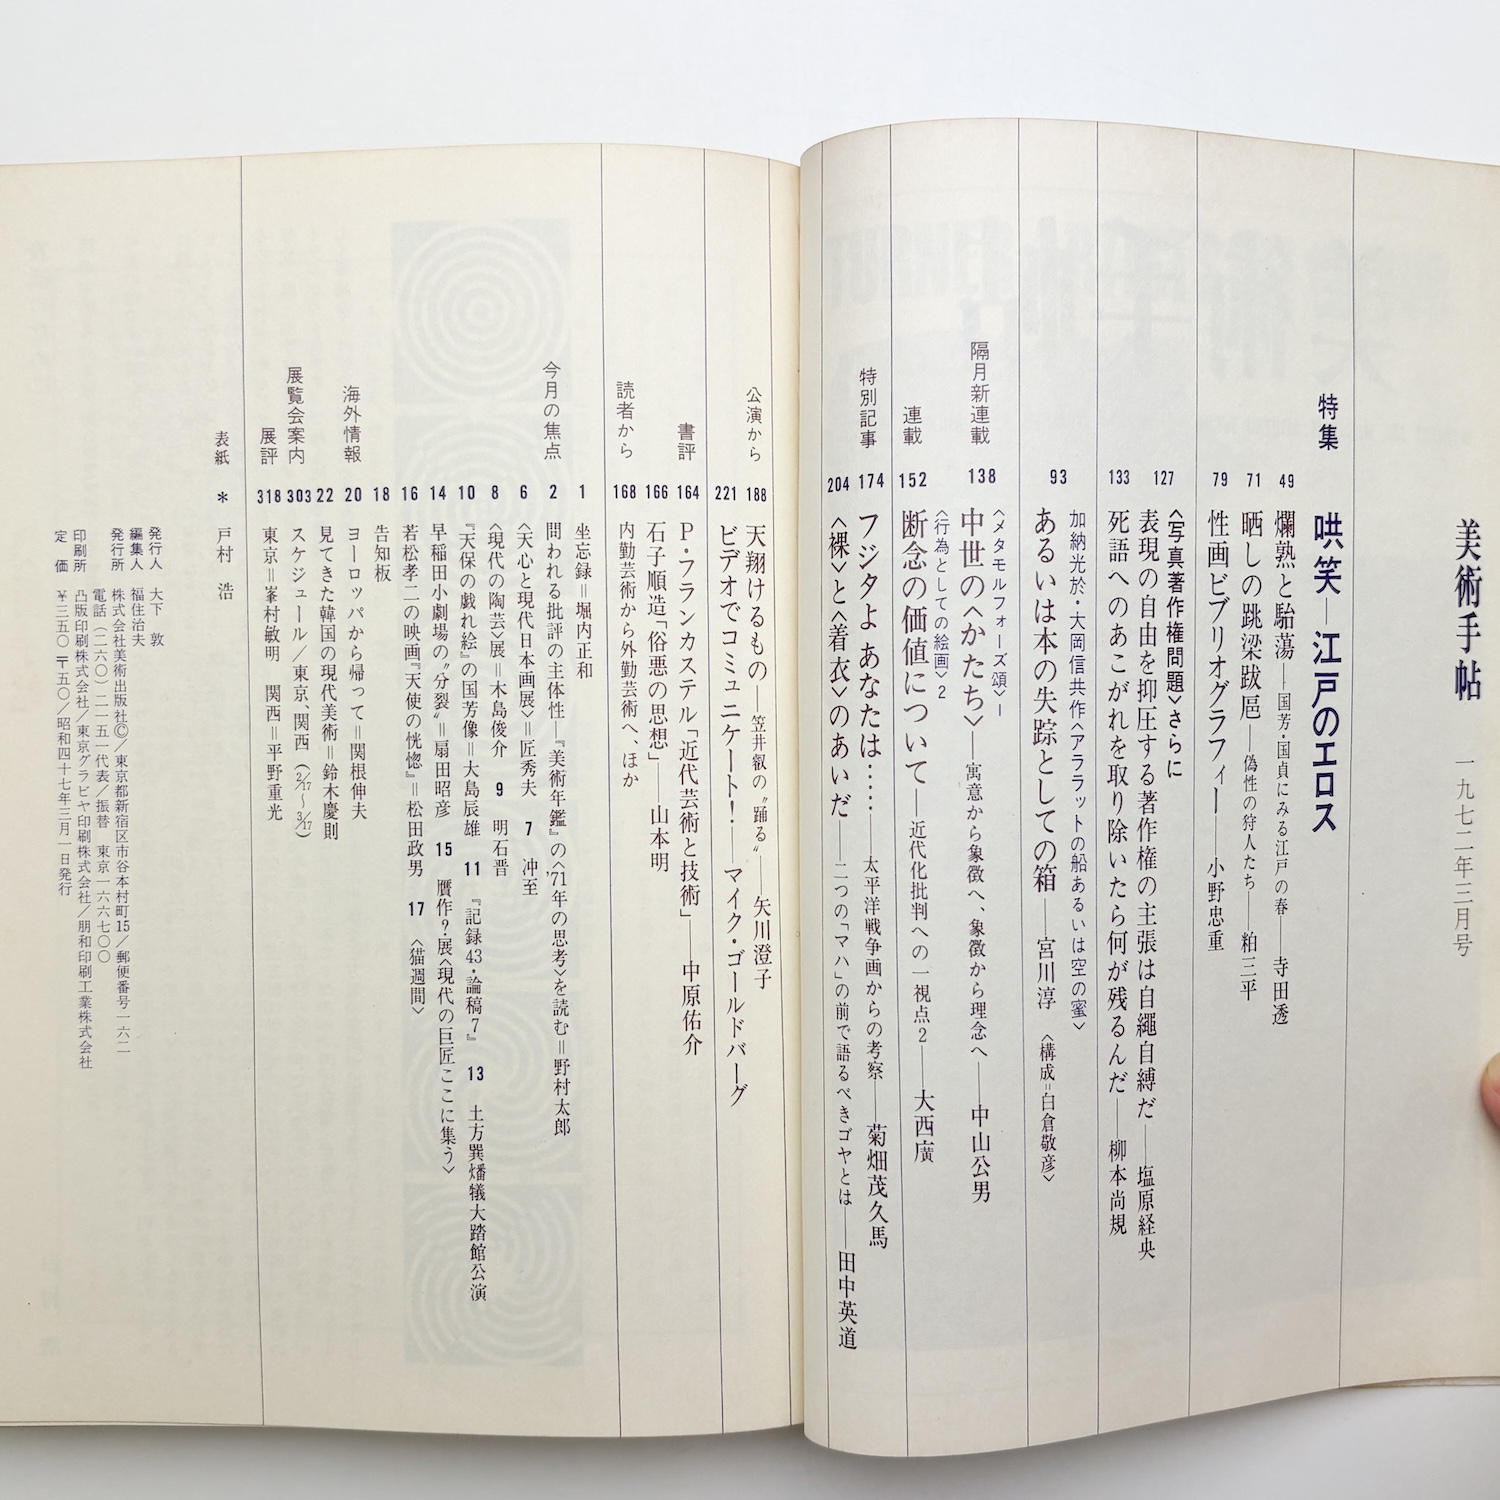 美術手帖 一九七二年三月号
特集 哄笑—江戸のエロス
49 爛熟と駘蕩——国芳・国貞にみる江戸の春——寺田透
71 晒しの跳梁跋扈——偽性の狩人たち——粕三平
79 性画ビブリオグラフィー——小野忠重
〈写真著作権問題〉さらに
127 表現の自由を抑圧する著作権の主張は自縄自縛だ——塩原経央
133 死語へのあこがれを取り除いたら何が残るんだ——柳本尚規
加納光於・大岡信共作〈アララットの船あるいは空の蜜〉
93 あるいは本の失踪としての箱——宮川淳 〈構成=白倉敬彦〉
〈メタモルフォーズ頌〉—
隔月新連載 138 中世の〈かたち〉——寓意から象徴へ、象徴から理念へ——中山公男
〈行為としての絵画〉2
連載 152 断念の価値について——近代化批判への一視点2——大西廣
特別記事 174 フジタよ あなたは……——太平洋戦争画からの考察——菊畑茂久馬
204 〈裸〉と〈着衣〉のあいだ——二つの「マハ」の前で語るべきゴヤとは——田中英道
公演から 188 天翔けるもの——笠井叡の〝踊る〟——矢川澄子
221 ビデオでコミュニケート!——マイク・ゴールドバーグ
書評 164 P・フランカステル「近代芸術と技術」——中原佑介
166 石子順造「俗悪の思想」——山本明
読者から 168 内勤芸術から外勤芸術へ、ほか
1 坐忘録=堀内正和
今月の焦点 2 問われる批評の主体性—『美術年鑑』の〈'71年の思考〉を読む=野村太郎
6 〈天心と現代日本画展〉=匠秀夫 7 冲至
8 〈現代の陶芸〉展=木島俊介 9 明石晋
10 『天保の戯れ絵』の国芳像=大島辰雄 11 『記録43・論稿7』 13 土方巽燔犠大踏館公演
14 早稲田小劇場の〝分裂〟=扇田昭彦 15 贋作?・展〈現代の巨匠ここに集う〉
16 若松孝二の映画『天使の恍惚』=松田政男 17 〈猫週間〉
18 告知板
海外情報 20 ヨーロッパから帰って=関根伸夫
22 見てきた韓国の現代美術=鈴木慶則
展覧会案内 303 スケジュール/東京、関西(2/17〜3/17)
展評 318 東京=峯村敏明 関西=平野重光
表紙 * 戸村 浩
発行人 大下 敦
編集人 福住治夫
発行所 株式会社美術出版社©/東京都新宿区市谷本村町15/郵便番号一六二
電話(二六〇)二一五一代表/振替 東京一六六七〇〇
印刷所 凸版印刷株式会社/東京グラビヤ印刷株式会社/朋和印刷工業株式会社
定 価 ¥三五〇 〒五〇/昭和四十七年三月一日発行